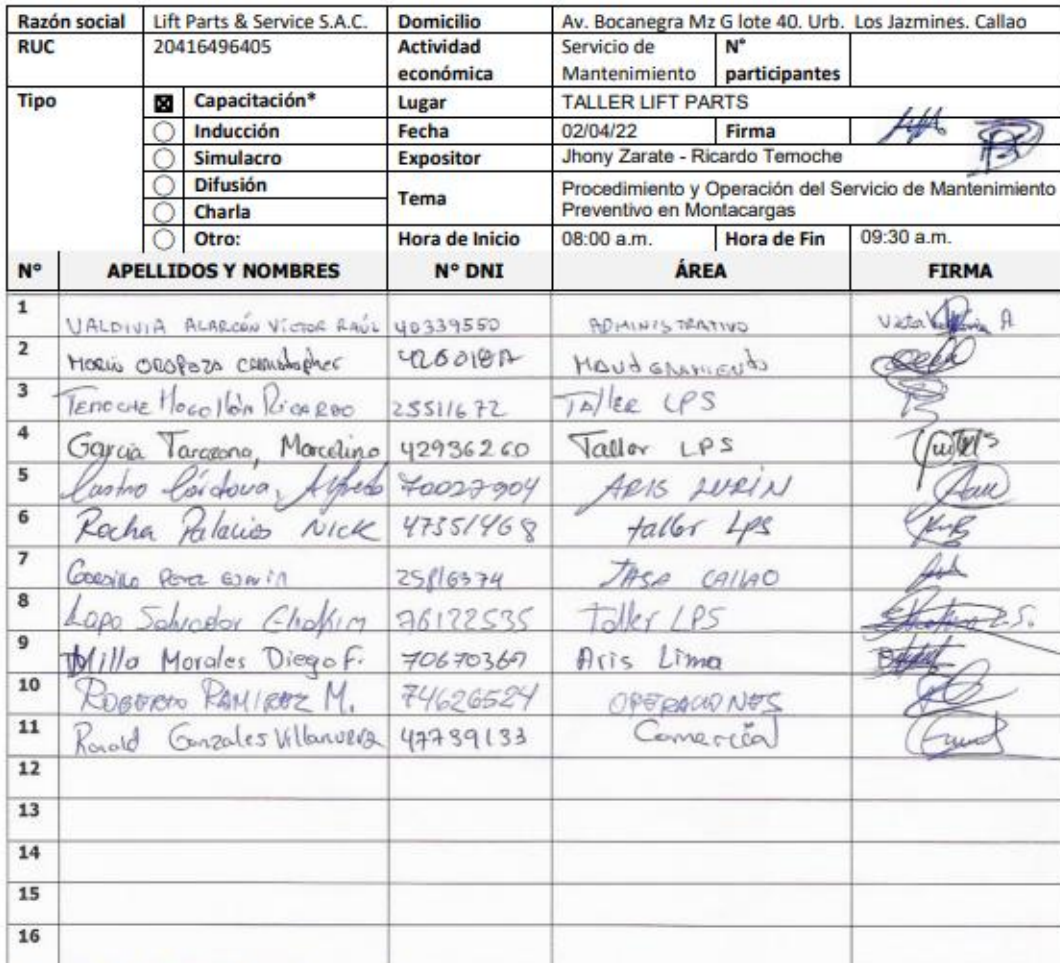 Razón social Lift Parts & Service S.A.C. Domicilio Av. Bocanegra Mz G lote 40. Urb. Los Jazmines. Callao
RUC 20416496405 Actividad económica Servicio de Mantenimiento N° participantes
Tipo Capacitación* Lugar TALLER LIFT PARTS
Inducción Fecha 02/04/22 Firma
Simulacro Expositor Jhony Zarate - Ricardo Temoche
Difusión Tema Procedimiento y Operación del Servicio de Mantenimiento
Charla Preventivo en Montacargas
Otro: Hora de Inicio 08:00 a.m. Hora de Fin 09:30 a.m.
N° APELLIDOS Y NOMBRES N° DNI ÁREA FIRMA
1 VALDIVIA ALARCÓN VÍCTOR RAÚL 40339550 ADMINISTRATIVO
2
3 TEMOCHE Mogollón RICARDO 25511672 TAller LPS
4 Garcia Tarazona, Marcelino 42936260 Taller LPS
5 Castro Córdova, Alfredo 70027904 ARIS LURÍN
6 Rocha Palacios NICK 47351468 taller Lps
7 Perez 25816374 TASA CALLAO
8 Lapa Salvador 76122535 Taller LPS
9 Milla Morales Diego F. Aris Lima
10 ROBERTO RAMIREZ M. 74626524 OPERACIONES
11 Ronald Gonzales Villanueva 47739133 Comercial
12
13
14
15
16